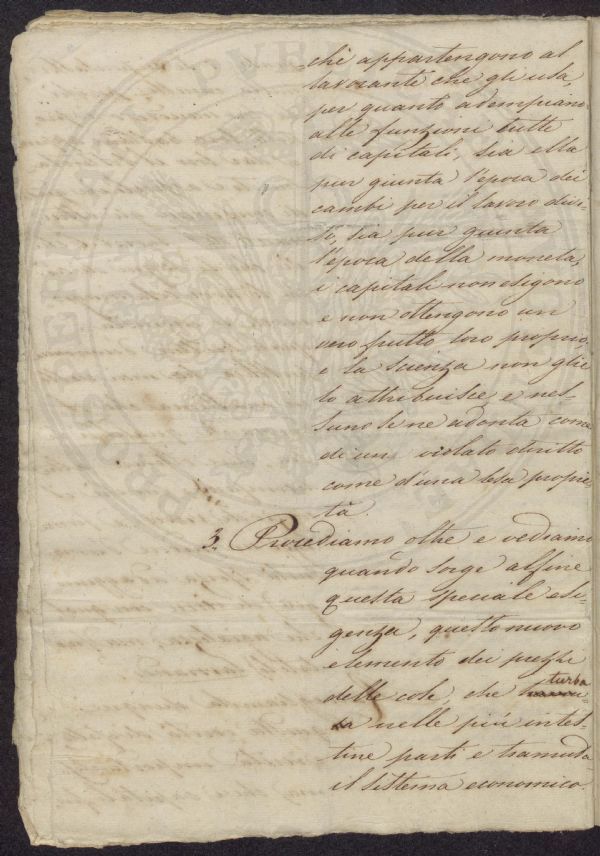 chè appartengono al
lavorante che gli usa,
per quanto adempiano
alle funzioni tutte
di capitali, sia ella
pur giunta l'epoca dei
cambi per il lavoro divi-
so, sia pur giunta
l'epoca della moneta,
i capitali non esigono
e non ottengono un
vero frutto loro proprio,
e la scienza non glie
lo attribuisce, e nes-
suno se ne adonta come
di un violato diritto
come d'una lesa proprie-
tà.
3. Procediamo oltre e vediamo
quando sorge alfine
questa speciale esi-
genza, questo nuovo
elemento dei prezzi
delle cose, che turba
nelle più intes-
tine parti e tramuta
il sistema economico.